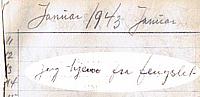 Januar 1943 Januar
1
2
3
14
jeg hjem fra fengslet